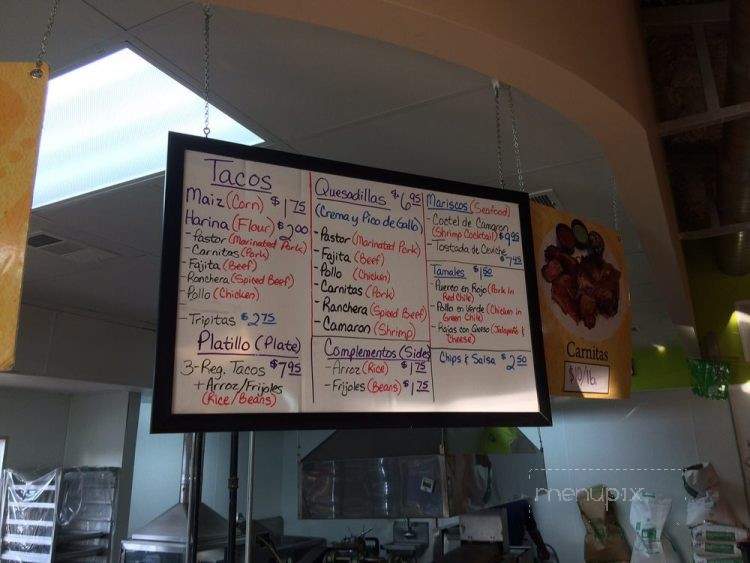 Tacos
Maiz (Corn) $1.75
Harina (Flour) $2.00
- Pastor (Marinated Pork)
- Carnitas (Pork)
- Fajita (Beef)
Ranchera (Spiced Beef)
- Pollo (Chicken)
- Tripitas $2.75
Platillo (Plate)
3-Reg. Tacos $7.95
+ Arroz/Frijoles
(Rice/Beans)
Quesadillas $6.95
(Crema y Pico de Gallo)
- Pastor (Marinated Pork)
- Fajita (Beef)
- Pollo (Chicken)
- Carnitas (Pork)
- Ranchera (Spiced Beef)
- Camaron (Shrimp)
Complementos (Sides
- Arroz (Rice) $1.75
- Frijoles (Beans) $1.75
Mariscos (Seafood)
- Coctel de Camaron
(Shrimp Cocktail) $9.95
- Tostada de Ceviche
Tamales $1.50
- Puerco en Rojo (Pork in
Red Chile)
- Pollo en Verde (Chicken in
Green Chile)
- Rajas con Queso (Jalapeño &
Cheese)
Chips & Salsa $2.50
Carnitas
$10/lb.
menupix